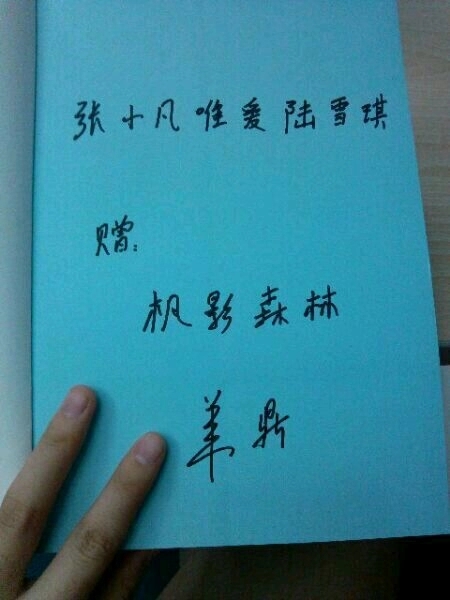 张小凡唯爱陆雪琪
赠:
枫影森林
萧鼎